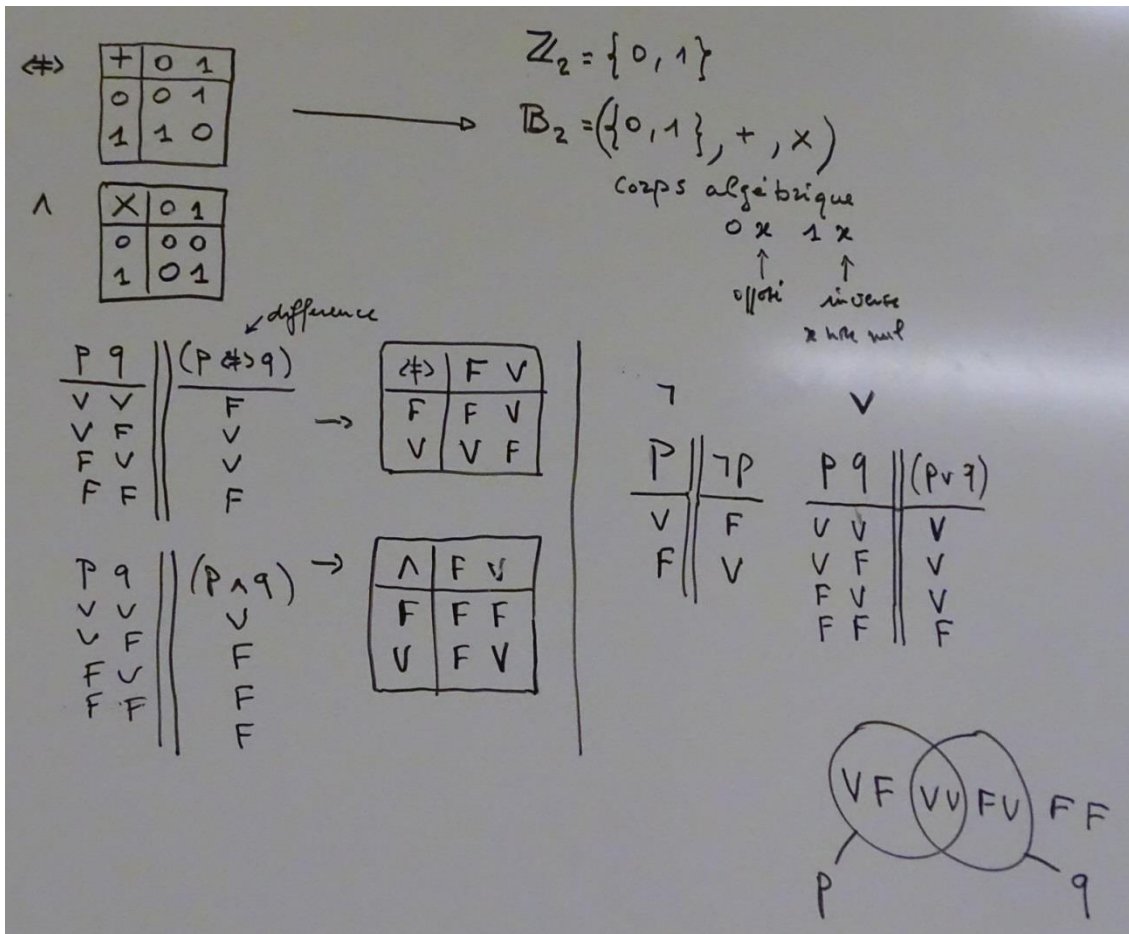 <≠> + 0 1
0 0 1
1 1 0
ℤ₂ = {0, 1}
𝔹₂ = ({0, 1}, +, ×)
corps algébrique
0 x 1 x
↑ ↑
opposé inverse
x non nul
∧ × 0 1
0 0 0
1 0 1
difference
P q (P <≠> q)
V V F
V F V
F V V
F F F
→
<≠> F V
F F V
V V F
P q (P ∧ q)
V V V
V F F
F V F
F F F
→
∧ F V
F F F
V F V
¬
P ¬P
V F
F V
∨
P q (P ∨ q)
V V V
V F V
F V V
F F F
V F V V F V F F
P q